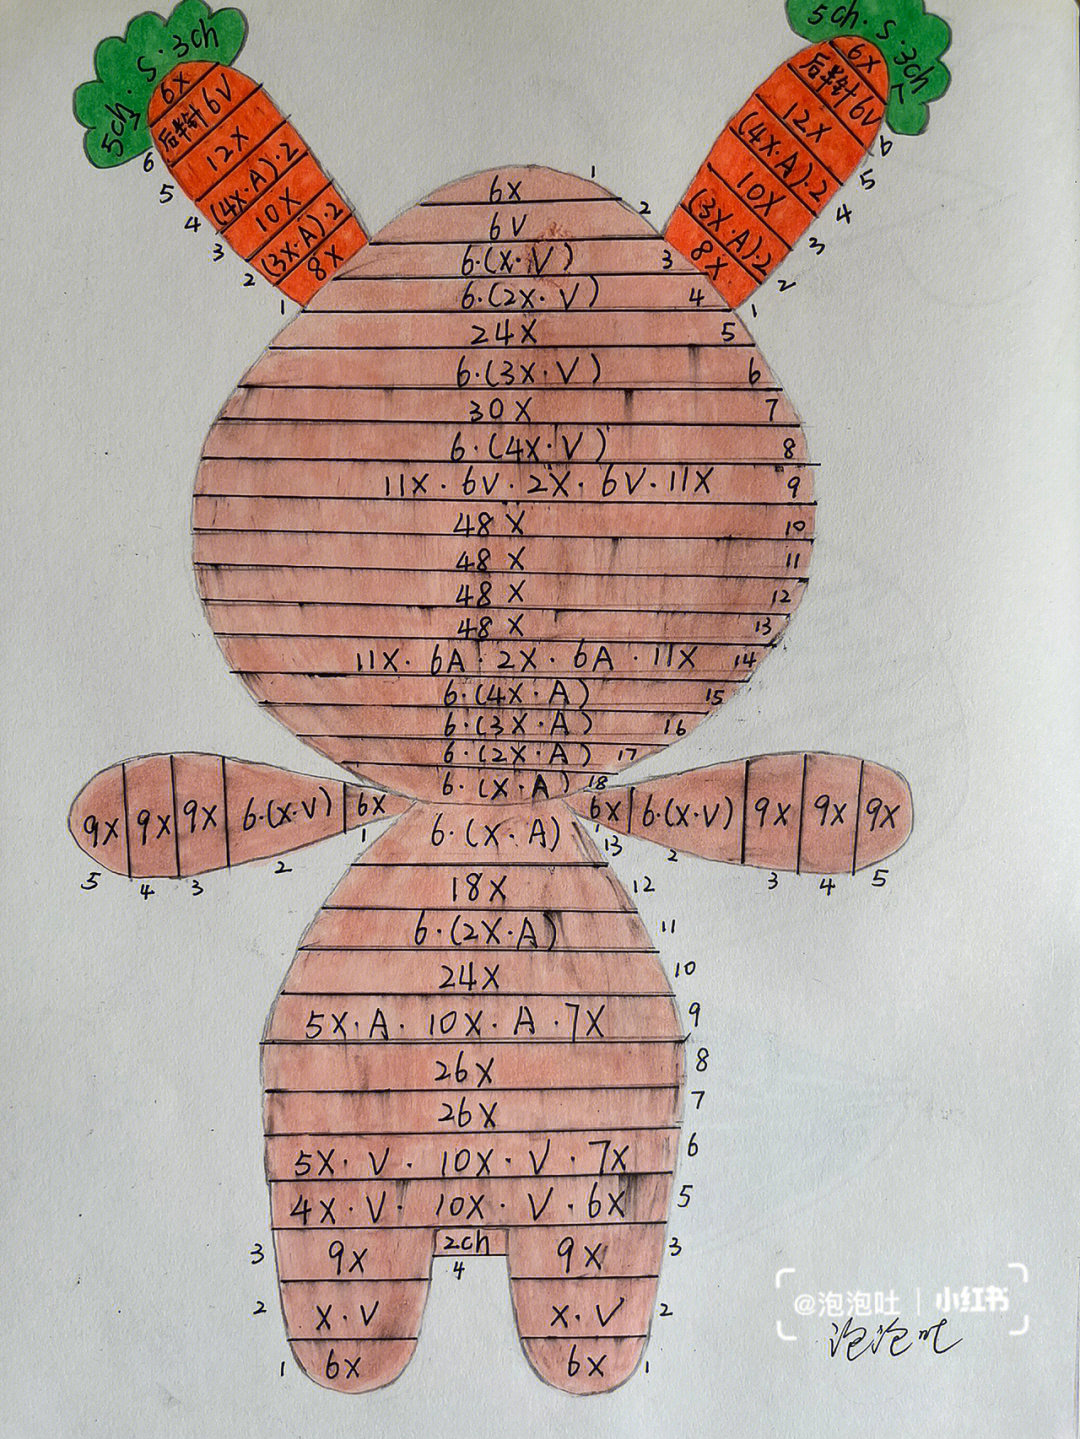 5ch·S·3ch
6X
后半针6V
12X
(4X·A)·2
10X
(3X·A)·2
8X
6
5
4
3
2
1
5ch·S·3ch
6X
后半针6V
12X
(4X·A)·2
10X
(3X·A)·2
8X
6
5
4
3
2
1
6X 1
6V 2
6·(X·V) 3
6·(2X·V) 4
24X 5
6·(3X·V) 6
30X 7
6·(4X·V) 8
11X·6V·2X·6V·11X 9
48X 10
48X 11
48X 12
48X 13
11X·6A·2X·6A·11X 14
6·(4X·A) 15
6·(3X·A) 16
6·(2X·A) 17
6·(X·A) 18
9X 9X 9X 6·(X·V) 6X
5 4 3 2 1
6X 6·(X·V) 9X 9X 9X
1 2 3 4 5
6·(X·A) 13
18X 12
6·(2X·A) 11
24X 10
5X·A·10X·A·7X 9
26X 8
26X 7
5X·V·10X·V·7X 6
4X·V·10X·V·6X 5
3 9X 2ch 9X 3
4
2 X·V X·V 2
1 6X 6X 1
@泡泡吐 | 小红书
泡泡吐